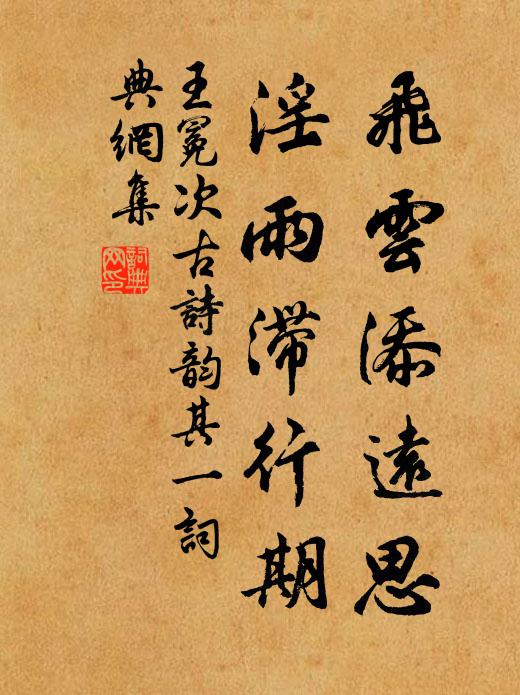 飛雲添遠思
淫雨滯行期
王冕次古詩韵其一詞
典網集
詞典網印